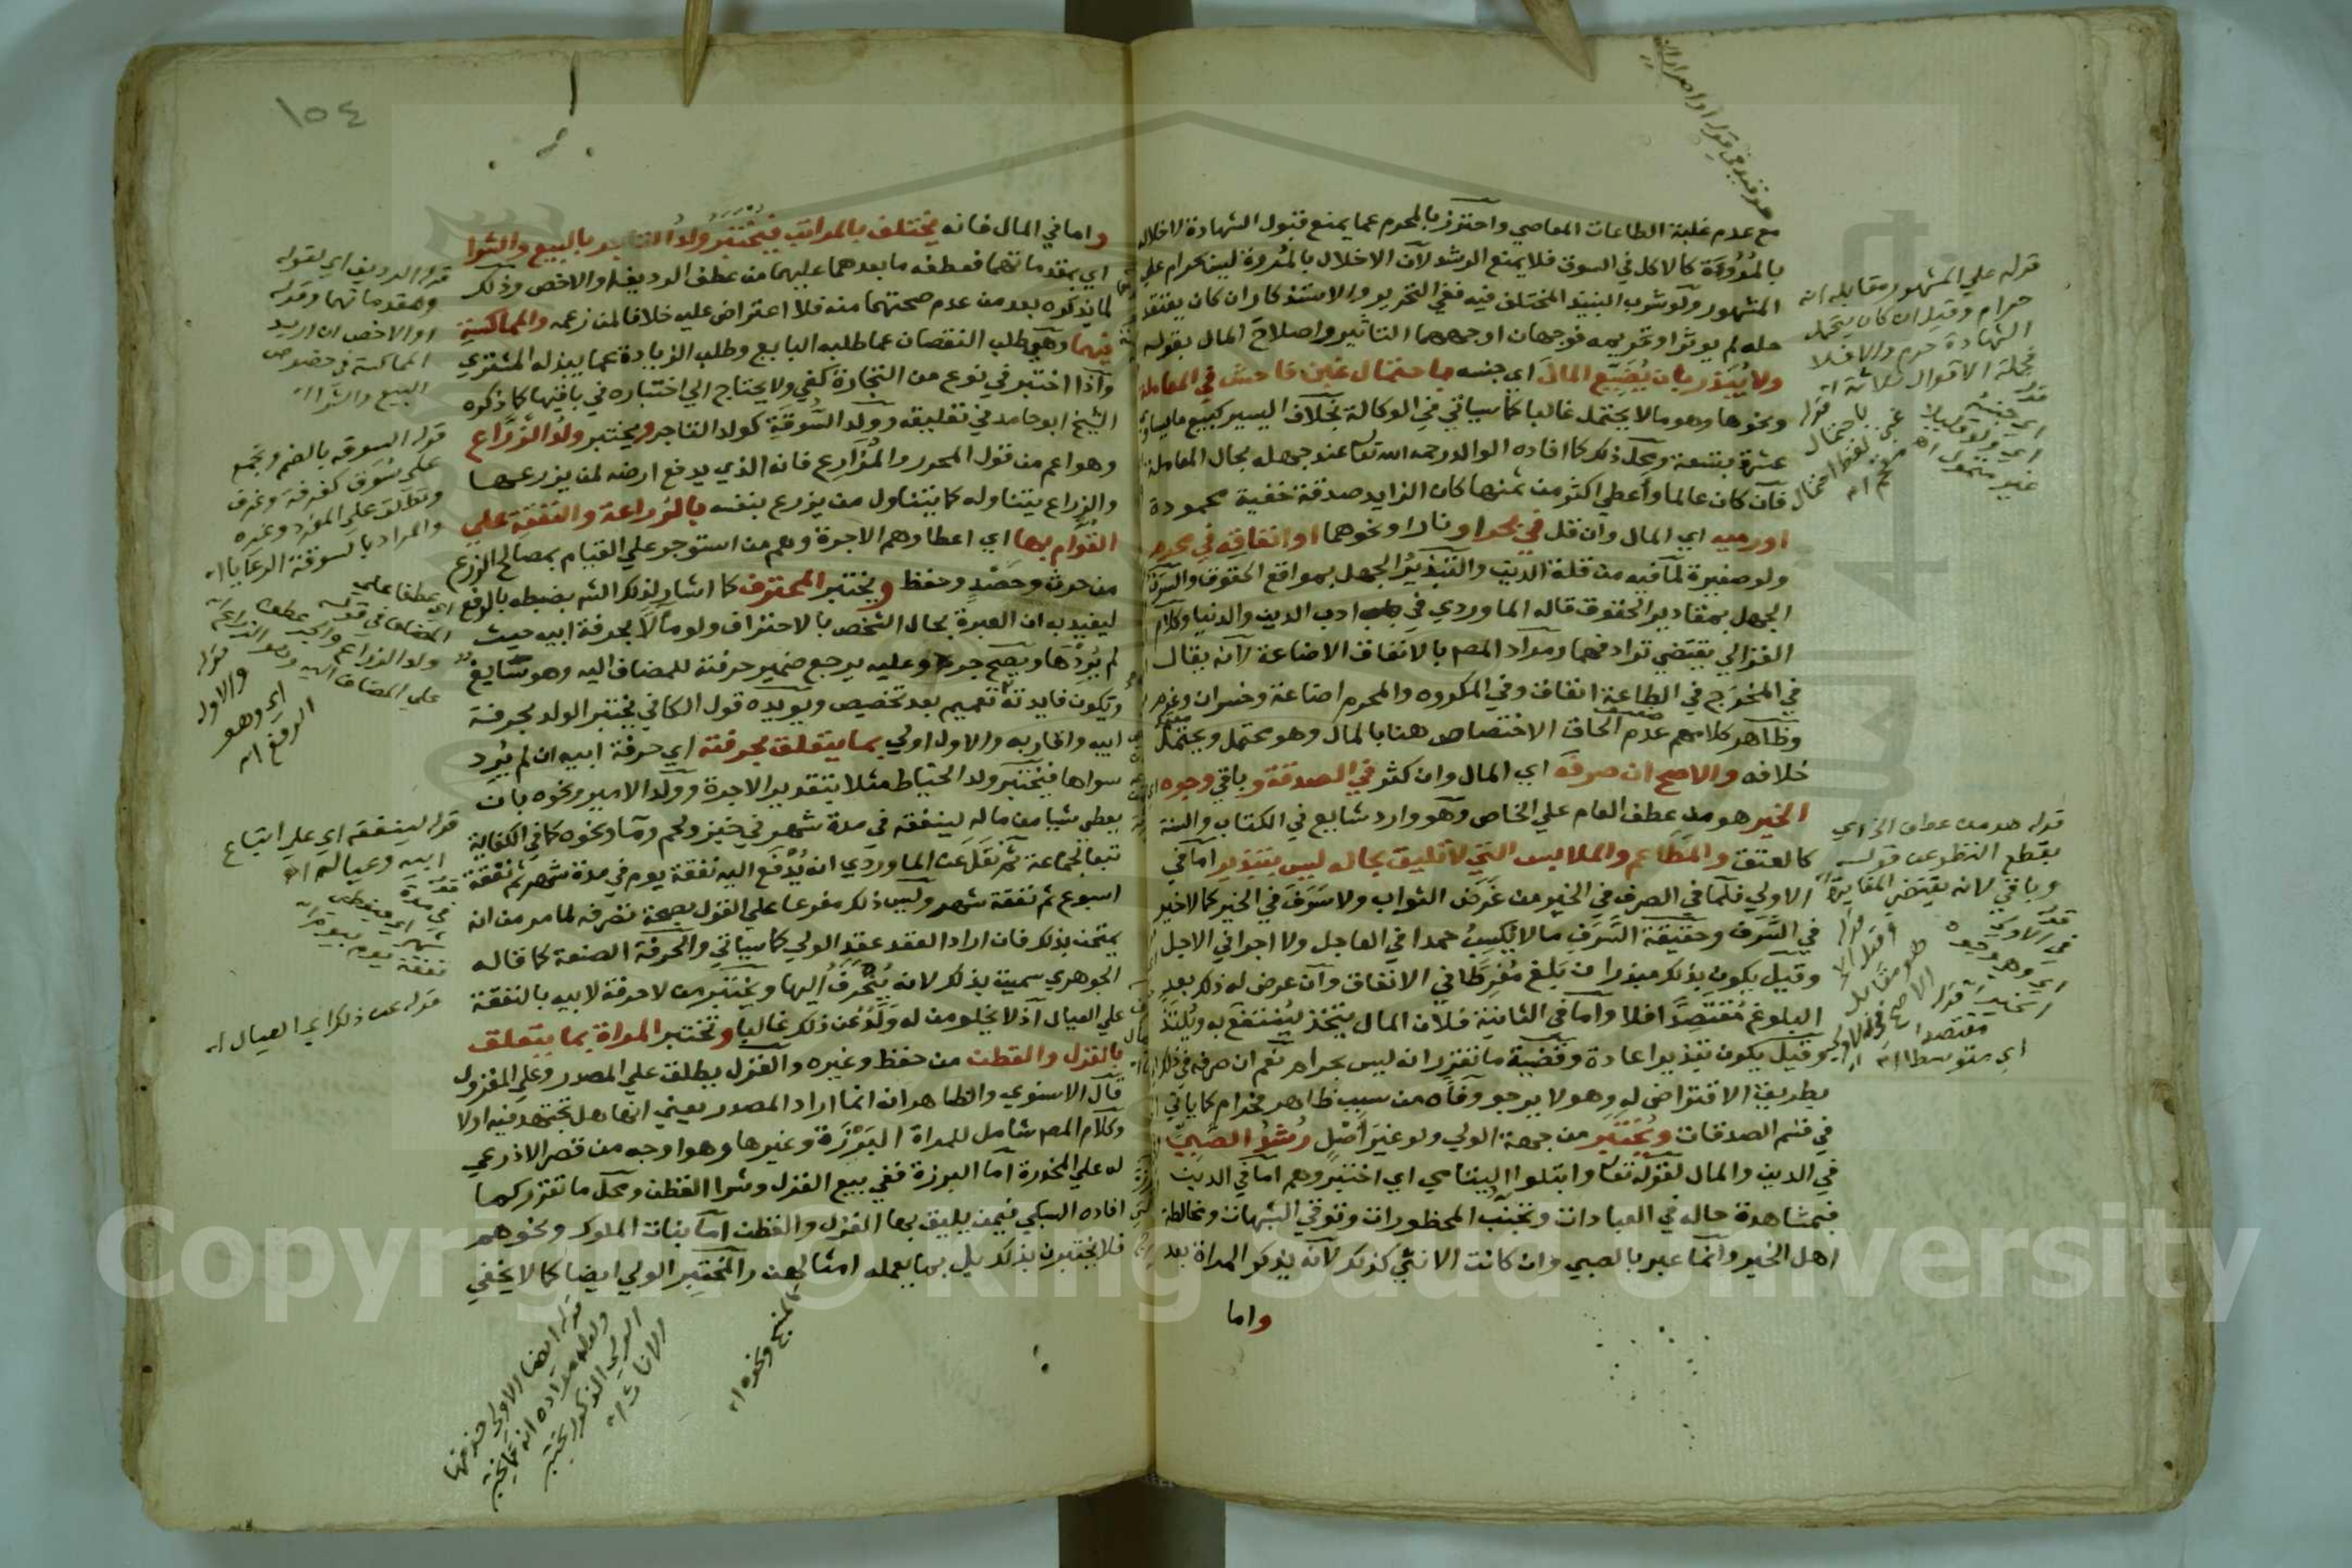 مع عدم غلبة الطاعات المعاصي واحترز بالمحرم عما يمنع قبول الشهادة لاخلاله
بالمُرُوءَة كالاكل في السوق فلا يمنع الرشد لآن الاخلال بالمُروة ليس بحرام علي
المشهور ولو شرب النبيذ المختلف فيه ففي التحرير والاستذكار ان كان يعتقد
حله لم يوثر او تحريمه فوجهان اوجههما التاثير واصلاح المال بقوله
ولا يُبَذر بان يُضَيّع المالَ اي جنسه باحتمال غبن فاحش في المعاملة
ونحوها وهو مالا يحتمل غالبا كما سياتي في الوكالة بخلاف اليسير كبيع ما يساوي
عشرة بتسعة ومحل ذلك كما افاده الوالد رحمه الله تعا عند جهله بحال المعاملة
فآن كان عالما وأعطي اكثر من ثمنها كان الزايد صدقة خفية محمودة
او رميه اي المال وان قل في بحر او نار او نحوهما او انفاقه في محرم
ولو صغيرة لمآفيه من قلة الدين والتبذيرُ الجهل بمواقع الحقوق والسرف
الجهل بمقادير الحقوق قاله الماوردي في ادب الدين والدنيا وكلام
الغزالي يقتضي ترادفهما ومراد المصم بالانفاق الاضاعة لآنه يقال
في المخرَج في الطاعة انفاق وفي المكروه والمحرم اضاعة وخسران وغرم
وظآهر كلامهم عدم الحاق الاختصاص هنا بالمال وهو محتمل ويحتمل
خلافه والاصح ان صرفَه اي المال وان كثر في الصدقة و باقي وجوه
الخير هو من عطف العام علي الخاص وهو وارد شايع في الكتاب والسنة
كالعتق والمطَاعم والملابس التي لا تليق بحاله ليس بتبذير اما في
الاولي فلآن في الصرف في الخير من غَرَض الثواب ولا سَرَفَ في الخير كما لا خير
في السَّرَف وحقيقة السَّرَفِ مالا يُكسِبُ حمدا في العاجل ولا اجرا في الاجل
وقيل يكون بذلك مبذرا ان بَلغ مُفرِطًا في الانفاق وآن عرض له ذلك بعد
البلوغ مُقتَصِدًا فلا واما في الثانية فلان المال يتخذ ليُنتفَع به ويُلتَذ
وقيل يكون تبذيرا عادة وقَضِية ما تقرر انه ليس بحرام نَعَم ان صرفه في ذلك
بطريق الاقتراض له وهو لا يرجو وفآه من سبب ظاهر فحرام كما ياتي
في قسم الصدقات ويُختبَر من جهة الولي ولو غيرَ اَصْلٍ رُشدُ الصَّبِيّ
في الدين والمال لقوله تعا وابتلوا اليتامي اي اختبروهم اما في الدين
فبمشاهدة حاله في العبادات وتجنُّب المحظورات وتوقي الشبهات ومخالطة
اهل الخير وانما عبر بالصبي وان كانت الانثي كذلك لآنه يذكر المراة بعد
واما
قوله علي المشهور مقابله انه
حرام وقيل ان كان يتحمل
الشهادة حرم والا فلا
فجملة الاقوال ثلاثة اه
قوله هو من عطف الخ اي
بقطع النظر عن قوله
وباقي لانه يقتضي المغايرة اه
اي متوسطا اه
١٥٤
واما في المال فانه يختلف بالمراتب فيُخْتَبَرُ ولدُ التاجر بالبيع والشرا
اي بمقدماتهما فعطفه ما بعدهما عليهما من عطف الرديف او الاخص وذلك
لما يذكره بعد من عدم صحتهما منه فلا اعتراض عليه خلافا لمن زعمه والمماكسةِ
فيهما وهي طلب النقصان عما طلبه البايع وطلب الزيادة عما يبذله المشتري
وآذا اختبر في نوع من التجارة كفي ولا يحتاج الي اختباره في باقيها كما ذكره
الشيخ ابو حامد في تعليقه وولد السُّوقَةِ كولد التاجر ويختبر ولدُ الزَّرَّاع
وهو اعم من قول المحرر والمُزَارِع فانه الذي يدفع ارضه لمن يزرعها
والزراع يتناوله كما يتناول من يزرع بنفسه بالزراعة والنفقةِ علي
القُوّام بها اي اعطاوهم الاجرة وهم من استوجر علي القيام بمصالح الزرع
من حرث وحَصْدٍ وحفظ ويختبر المحترف كما اشار لذلك الشه بضبطه بالرفع
ليفيد به ان العبرة بحال الشخص بالاحتراف ولو مآلا بحرفة ابيه حيث
لم يُرِدْهَا ويصح جره وعليه يرجع ضمير حرفته للمضاف اليه وهو سايغ
وتكون فايدته تعميم بعد تخصيص ويويده قول الكافي يختبر الولد بحرفة
ابيه واقاربه والاول اولي بما يتعلق بحرفته اي حرفة ابيه ان لم يُرِد
سواها فيُختَبَر ولد الخياط مثلا بتقدير الاجرة وولد الامير ونحوه بان
يعطي شيا من ماله لينفقه في مدة شهر في خبز ولحم وما ونحوه كما في الكفاية
تبعا لجماعة ثم نَقَلَ عن الماوردي انه يُدْفَع اليه نفقة يوم في مدة شهر ثم نفقة
اسبوع ثم نفقة شهر وليس ذلك مفرعا علي القول بصحة تصرفه لما مر من انه
يمتحن بذلك فان اراد العقد عقد الولي كما سياتي والحرفة الصنعة كما قاله
الجوهري سميت بذلك لانه يُنْحَرَفُ اليها ويختبر من لا حرفة لابيه بالنفقة
علي العيال آذ لا يخلو من له وَلَدٌ عن ذلك غالبا وتختبر المراة بما يتعلق
بالغزل والقطن من حفظ وغيره والغزل يطلق علي المصدر وعلي المغزول
قال الاسنوي والظاهر انه انما اراد المصدر يعني انها هل تجتهد فيه او لا
وكلام المصم شامل للمراة البَرْزَة وغيرها وهو اوجه من قصر الاذرعي
له علي المخدرة آما البرزة ففي بيع الغزل وشرا القطن ومحل ما تقرر كما
افاده السبكي فيمن يليق بها الغزل والقطن آما بنات الملوك ونحوهم
فلا يختبرن بذلك بل بما يعمله امثالهن والمختبِر الولي ايضا كما لا يخفي
قوله الرديف اي لقوله
ومقدماتهما وقوله
او الاخص ان اريد
المماكسة في خصوص
البيع والشرا اه
قوله السوقه بالضم وتجمع
علي سُوَق كغرفة وغرف
وتطلق علي المفرد وغيره
والمراد بالسوقة الرعايا اه
قوله
والاول
اي وهو
الرفع اه
قوله لينفقه اي علي اتباع
ابيه وعياله اه
قوله عن ذلك اي العيال اه
قوله ايضا الاولي حذفها
ولعل مراده انه كما يختبر
الولي الذكور يختبر
الاناث اه
Copyright © King Saud University